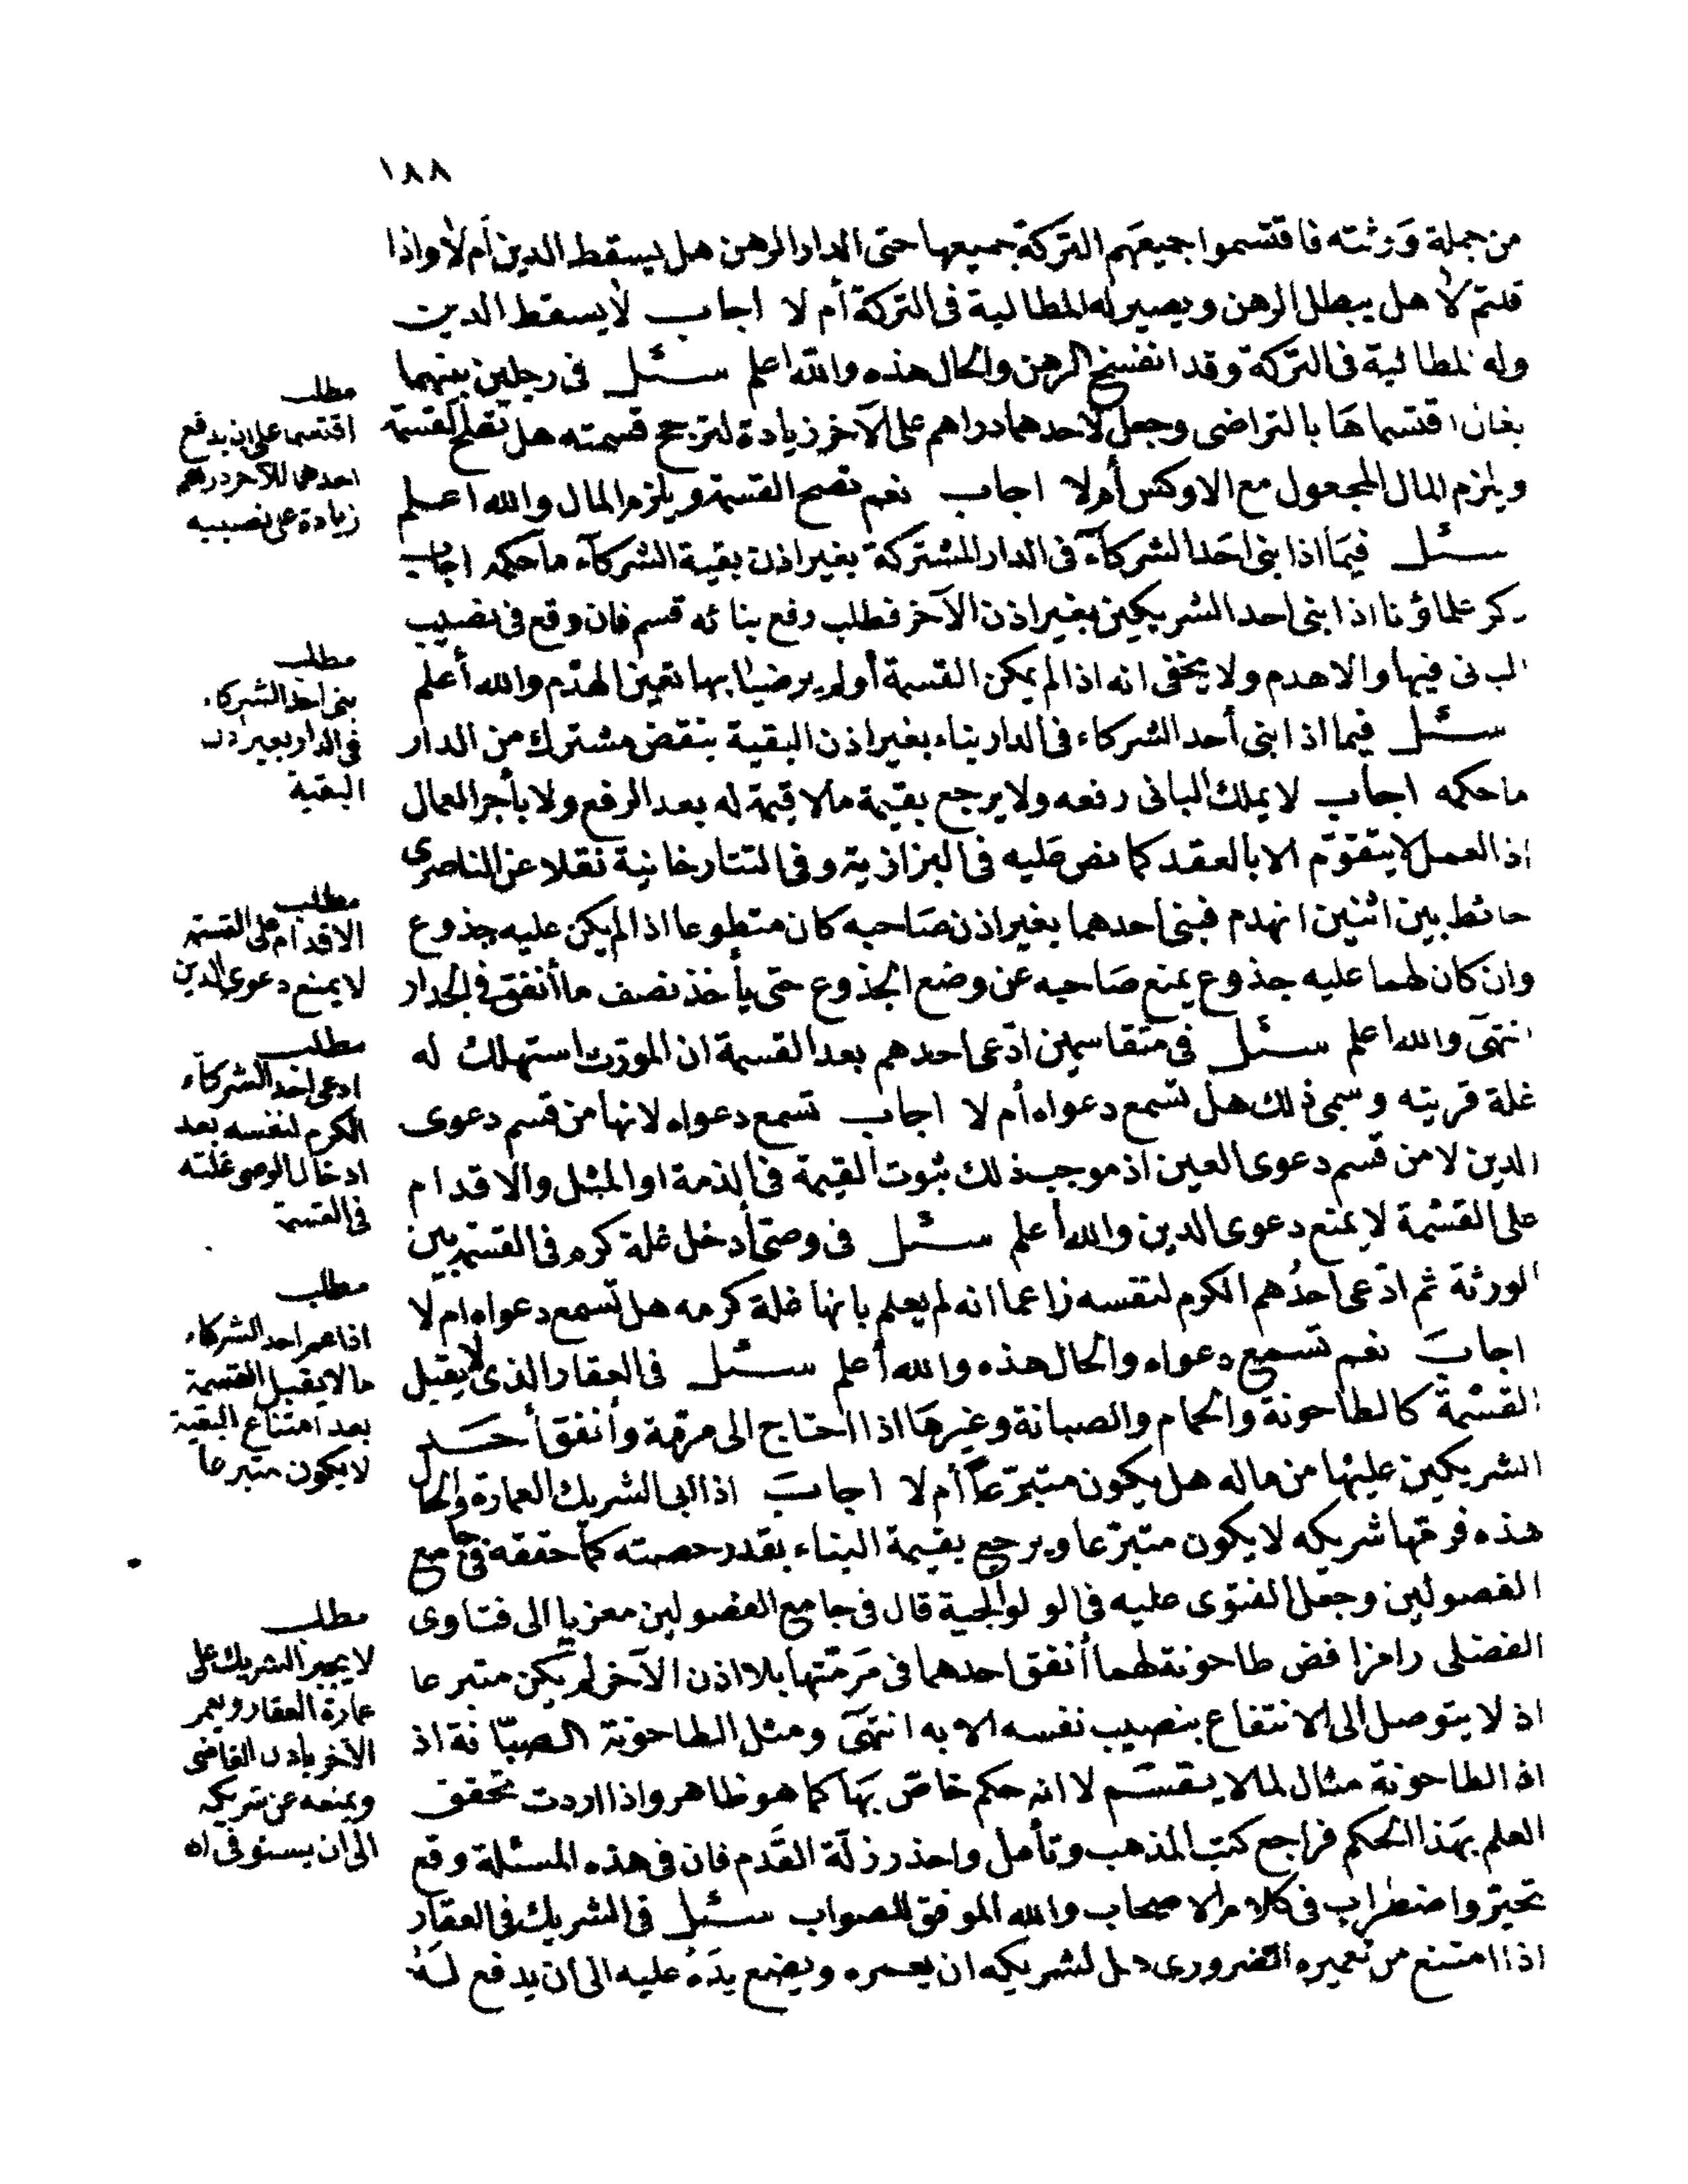 ١٨٨
من جملة وَرَثته فاقتسموا جميعَهم التركة جميعها حتى الدار الرهن هل يسقط الدين أم لا واذا
قلتم لا هل يبطل الرهن ويصير له المطالبة فى التركة أم لا اجاب لا يسقط الدين
وله المطالبة فى التركة وقد انفسخ الرهن والحال هذه والله اعلم سئل فى رجلين بينهما
اقتسماهَا بالتراضى وجعل لاحدهما دراهم على الآخر زيادة لترجح قسمته هل تصح القسمة
ويلزم المال المجعول مع الاوكس أم لا اجاب نعم تصح القسمة ويلزم المال والله اعلم
سئل فيمَا اذا بنى احَد الشركآء فى الدار المشتركة بغير اذن بقية الشركآء ما حكمه اجاب
ذكر علماؤنا اذا بنى احد الشريكين بغير اذن الآخر فطلب رفع بنائه قسم فان وقع فى نصيب
البانى فبها والا هدم ولا يخفى انه اذا لم يمكن القسمة أولم يرضيَا بها تعين الهدم والله أعلم
سئل فيما اذا بنى أحد الشركاء فى الدار بناء بغير اذن البقية بنقض مشترك من الدار
ما حكمه اجاب لا يملك البانى رفعه ولا يرجع بقيمة ما لا قيمة له بعد الرفع ولا بأجر العمال
اذ العمل لا يتقوّم الا بالعقد كما نص عَليه فى البزازية وفى التتارخانية نقلا عن الناصرى
حائط بين اثنين انهدم فبنى احدهما بغير اذن صَاحبه كان متطوعا اذا لم يكن عليه جذوع
وان كان لهما عليه جذوع يمنع صَاحبه عن وضع الجذوع حتى يأخذ نصف ما أنفق فى الجدار
انتهى والله اعلم سئل فى متقاسمين ادّعى احدهم بعد القسمة ان المورّث استهلك له
غلة قريته وسمى ذلك هل تسمع دعواه أم لا اجاب تسمع دعواه لانها من قسم دعوى
الدين لا من قسم دعوى العين اذ موجب ذلك ثبوت القيمة فى الذمة او المثل والاقدام
على القسْمة لا يمنع دعوى الدين والله أعلم سئل فى وصىّ أدخل غلة كرم فى القسمة بين
الورثة ثم ادّعى احدُهم الكرم لنفسه زاعما انه لم يعلم بانها غلة كرمه هل تسمع دعواه ام لا
اجابَ نعم تسمع دعواه والحال هذه والله أعلم سئل فى العقار الذى لا يقبل
القسْمة كالطاحونة والحمام والصبانة وغيرهَا اذا احتاج الى مرمّة وأنفق أحَد
الشريكين عليها من ماله هل يكون متبرّعاً أم لا اجابَ اذا ابى الشريك العمارة والحال
هذه فرمّها شريكه لا يكون متبرّعا ويرجع بقيمة البناء بقدر حصته كما حققه فى جامع
الفصولين وجعل الفتوى عليه فى الولوالجية قال فى جامع الفصولين معزيا الى فتاوى
الفضلى رامزا فض طاحونة لهما أنفق احدهما فى مَرمّتها بلا اذن الآخر لم يكن متبرعا
اذ لا يتوصل الى الانتفاع بنصيب نفسه الا به انتهى ومثل الطاحونة الصبّانة اذ
اذ الطاحونة مثال لما لا يقسَم لا انه حكم خاصّ بهَا كما هو ظاهر واذا اردت تحقق
العلم بهَذا الحكم فراجع كتب المذهب وتأمل واحذر زلّة القَدم فان فى هذه المسئلة وقع
تحيّر واضطراب فى كلام الاصحاب والله الموفق للصواب سئل فى الشريك فى العقار
اذا امتنع من تعميره الضرورى هل لشريكه ان يعمره ويضع يدَهُ عليه الى أن يدفع لهُ
مطلب
اقتسما على ان يدفع
احدهما للآخر دراهم
زيادة على نصيبه
مطلب
بنى احد الشركاء
فى الدار بغير اذن
البقية
مطلب
الاقدام على القسمة
لا يمنع دعوى الدين
مطلب
ادعى احد الشركآء
الكرم لنفسه بعد
ادخال الوصى غلته
فى القسمة
مطلب
اذا عمر احد الشركاء
ما لا يقبل القسمة
بعد امتناع البقية
لا يكون متبرعا
مطلب
لا يجبر الشريك على
عمارة العقار ويعمر
الآخر باذن القاضى
ويمنعه عن شريكه
الى ان يستوفى اه